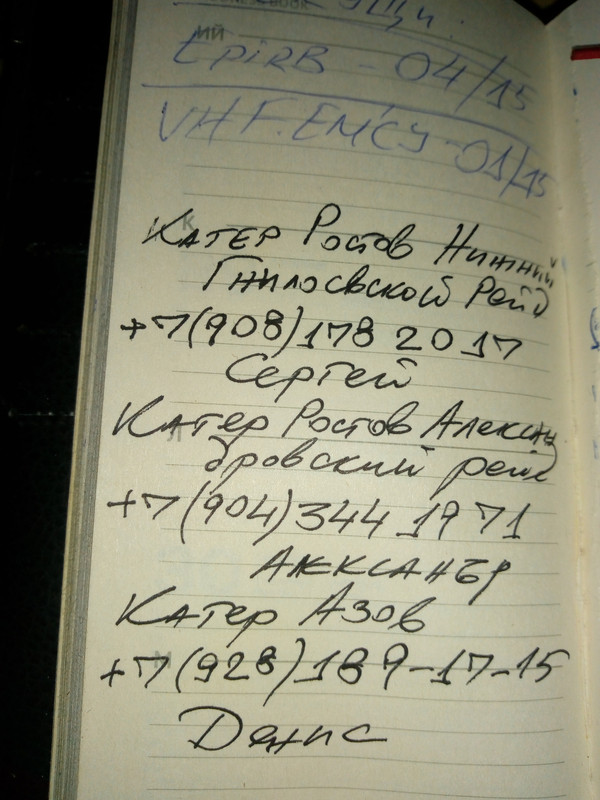 EpirB - 04/15
VHF. EMC'Y - 01/15
К
Катер Ростов Нижний
Гнилосвской Рейд
+7(908)178 20 17
Сергей
Катер Ростов Александ
Л
дровский рейд
+7(904)344 1971
Александр
Катер Азов
М
+7(928)189-17-15
Денис